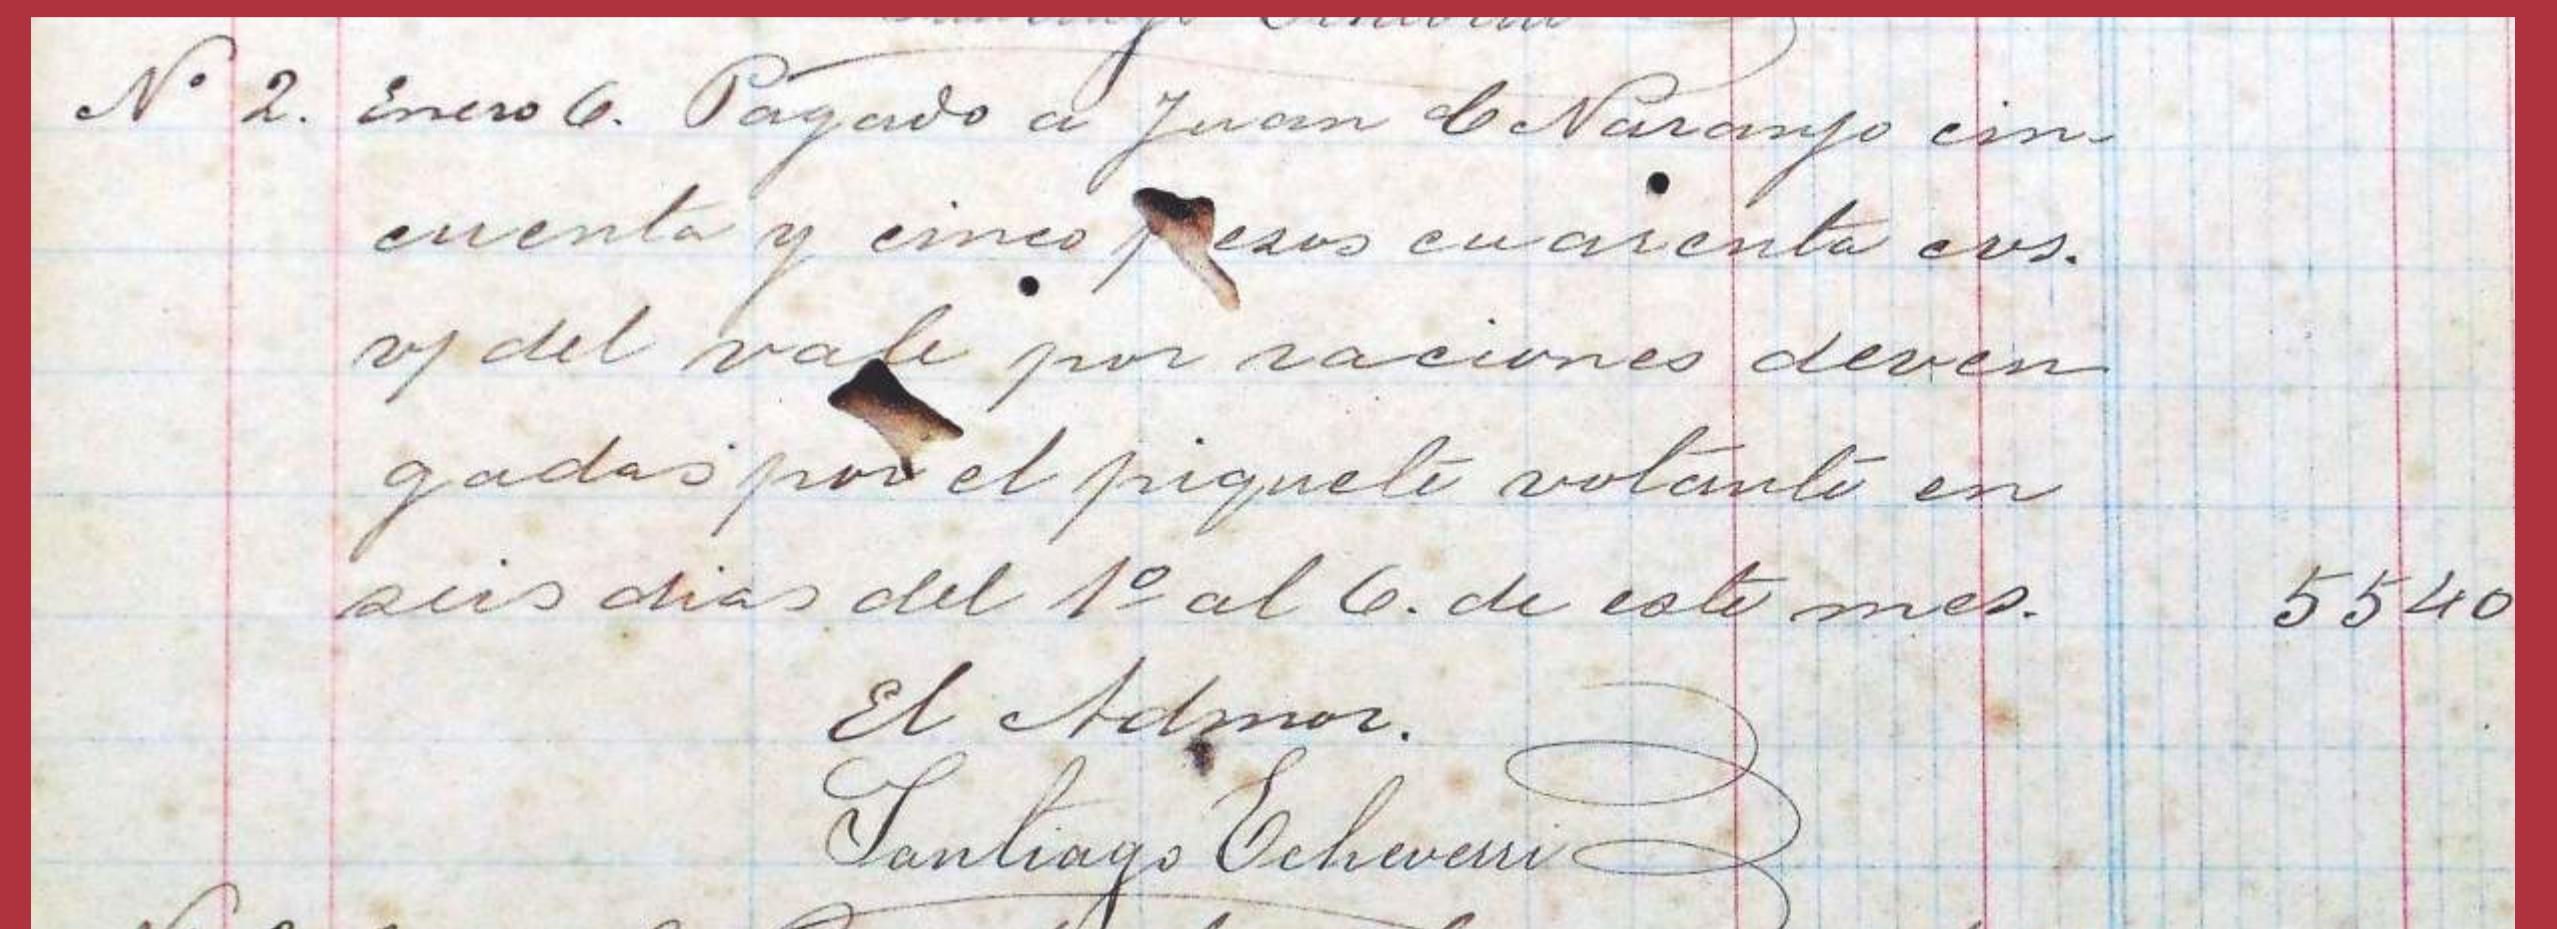 Nº 2. Enero 6. Pagado a Juan C Naranjo cin-
cuenta y cinco pesos cuarenta cvs.
v/ del vale por raciones deven
gadas por el piquete volante en
seis dias del 1º al 6. de este mes. 55 40
El Admor.
Santiago Echeverri